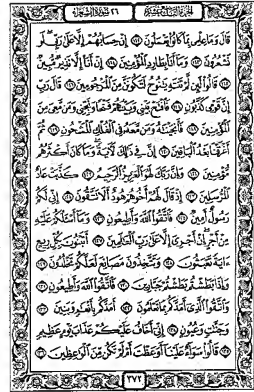 الجزء التاسع عشر ٢٦ سورة الشعراء
قَالَ وَمَا عِلْمِى بِمَا كَانُوا۟ يَعْمَلُونَ ﴿١١٢﴾ إِنْ حِسَابُهُمْ إِلَّا عَلَىٰ رَبِّى لَوْ
تَشْعُرُونَ ﴿١١٣﴾ وَمَآ أَنَا۠ بِطَارِدِ ٱلْمُؤْمِنِينَ ﴿١١٤﴾ إِنْ أَنَا۠ إِلَّا نَذِيرٌ مُّبِينٌ
﴿١١٥﴾ قَالُوا۟ لَئِن لَّمْ تَنتَهِ يَـٰنُوحُ لَتَكُونَنَّ مِنَ ٱلْمَرْجُومِينَ ﴿١١٦﴾ قَالَ رَبِّ
إِنَّ قَوْمِى كَذَّبُونِ ﴿١١٧﴾ فَٱفْتَحْ بَيْنِى وَبَيْنَهُمْ فَتْحًا وَنَجِّنِى وَمَن مَّعِىَ مِنَ
ٱلْمُؤْمِنِينَ ﴿١١٨﴾ فَأَنجَيْنَـٰهُ وَمَن مَّعَهُۥ فِى ٱلْفُلْكِ ٱلْمَشْحُونِ ﴿١١٩﴾ ثُمَّ
أَغْرَقْنَا بَعْدُ ٱلْبَاقِينَ ﴿١٢٠﴾ إِنَّ فِى ذَٰلِكَ لَـَٔايَةً وَمَا كَانَ أَكْثَرُهُم
مُّؤْمِنِينَ ﴿١٢١﴾ وَإِنَّ رَبَّكَ لَهُوَ ٱلْعَزِيزُ ٱلرَّحِيمُ ﴿١٢٢﴾ كَذَّبَتْ عَادٌ
ٱلْمُرْسَلِينَ ﴿١٢٣﴾ إِذْ قَالَ لَهُمْ أَخُوهُمْ هُودٌ أَلَا تَتَّقُونَ ﴿١٢٤﴾ إِنِّى لَكُمْ
رَسُولٌ أَمِينٌ ﴿١٢٥﴾ فَٱتَّقُوا۟ ٱللَّهَ وَأَطِيعُونِ ﴿١٢٦﴾ وَمَآ أَسْـَٔلُكُمْ عَلَيْهِ
مِنْ أَجْرٍ إِنْ أَجْرِىَ إِلَّا عَلَىٰ رَبِّ ٱلْعَـٰلَمِينَ ﴿١٢٧﴾ أَتَبْنُونَ بِكُلِّ رِيعٍ
ءَايَةً تَعْبَثُونَ ﴿١٢٨﴾ وَتَتَّخِذُونَ مَصَانِعَ لَعَلَّكُمْ تَخْلُدُونَ ﴿١٢٩﴾
وَإِذَا بَطَشْتُم بَطَشْتُمْ جَبَّارِينَ ﴿١٣٠﴾ فَٱتَّقُوا۟ ٱللَّهَ وَأَطِيعُونِ ﴿١٣١﴾
وَٱتَّقُوا۟ ٱلَّذِىٓ أَمَدَّكُم بِمَا تَعْلَمُونَ ﴿١٣٢﴾ أَمَدَّكُم بِأَنْعَـٰمٍ وَبَنِينَ ﴿١٣٣﴾
وَجَنَّـٰتٍ وَعُيُونٍ ﴿١٣٤﴾ إِنِّىٓ أَخَافُ عَلَيْكُمْ عَذَابَ يَوْمٍ عَظِيمٍ
﴿١٣٥﴾ قَالُوا۟ سَوَآءٌ عَلَيْنَآ أَوَعَظْتَ أَمْ لَمْ تَكُن مِّنَ ٱلْوَٰعِظِينَ ﴿١٣٦﴾
٣٧٢